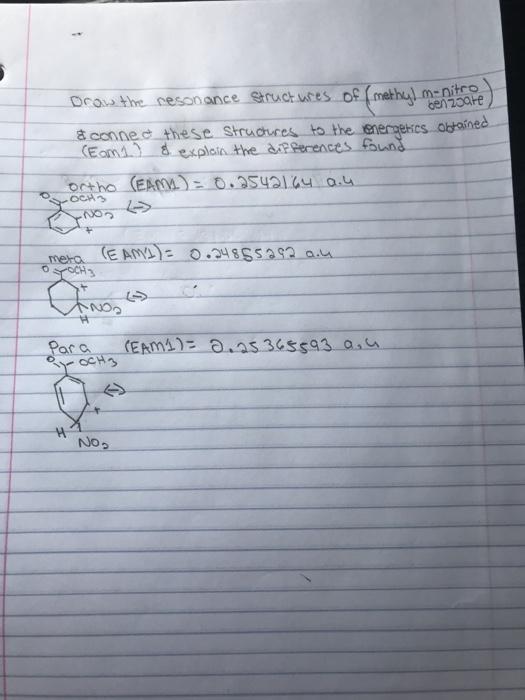 Draw the resonance structures of (methyl m-nitro benzoate)
& connect these structures to the energetics obtained
(Eam1) & explain the differences found
ortho (EAM1) = 0.2542164 a.u
O OCH3
NO2 ↔
+
meta (EAM1) = 0.24855292 a.u
O OCH3
+
NO2 ↔
H
Para (EAM1) = 0.25365593 a.u
O OCH3
↔
+
H
NO2